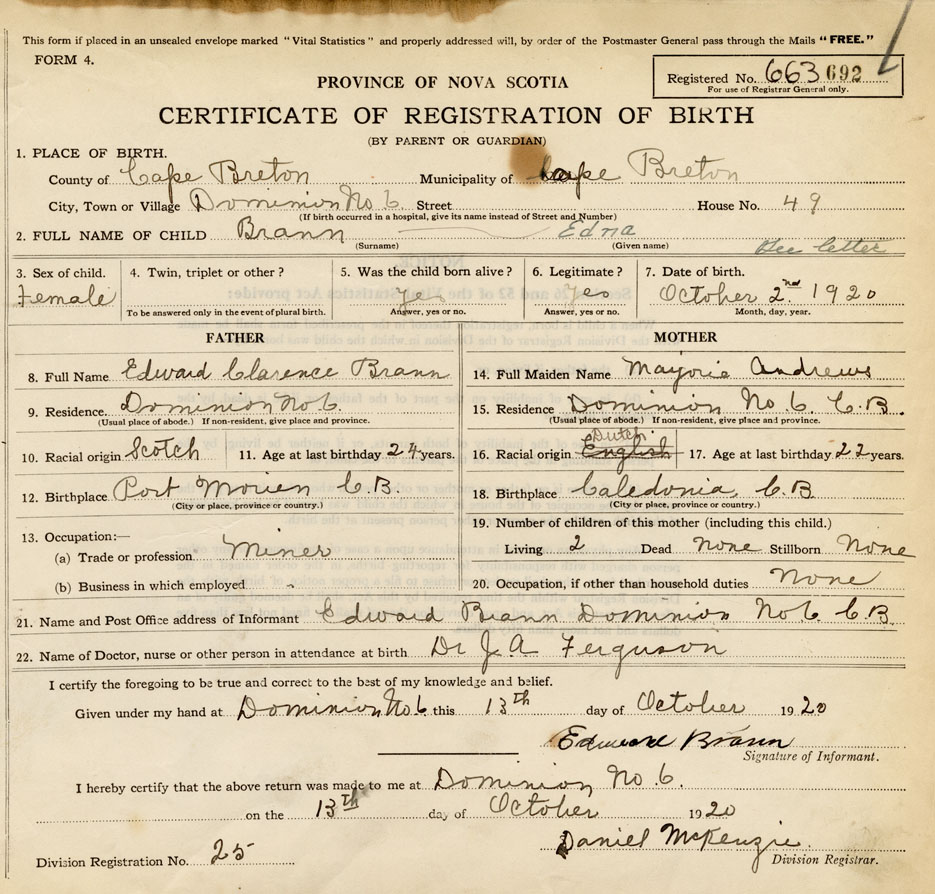 This form if placed in an unsealed envelope marked "Vital Statistics" and properly addressed will, by order of the Postmaster General pass through the Mails "FREE."
FORM 4.
Registered No. 663 692
For use of Registrar General only.
PROVINCE OF NOVA SCOTIA
CERTIFICATE OF REGISTRATION OF BIRTH
(BY PARENT OR GUARDIAN)
1. PLACE OF BIRTH.
County of Cape Breton Municipality of Cape Breton
City, Town or Village Dominion No 6 Street House No. 49
(If birth occurred in a hospital, give its name instead of Street and Number)
2. FULL NAME OF CHILD Brann Edna
(Surname) (Given name) See letter
3. Sex of child. 4. Twin, triplet or other? 5. Was the child born alive? 6. Legitimate? 7. Date of birth.
Female yes yes October 2nd 1920
To be answered only in the event of plural birth. Answer, yes or no. Answer, yes or no. Month, day, year.
FATHER MOTHER
8. Full Name Edward Clarence Brann 14. Full Maiden Name Marjorie Andrews
9. Residence. Dominion No 6. 15. Residence Dominion No 6. C.B.
(Usual place of abode.) If non-resident, give place and province. (Usual place of abode.) If non-resident, give place and province.
Dutch
10. Racial origin Scotch 11. Age at last birthday 24 years. 16. Racial origin English 17. Age at last birthday 22 years.
12. Birthplace Port Morien C.B. 18. Birthplace Caledonia, C.B
(City or place, province or country.) (City or place, province or country.)
19. Number of children of this mother (including this child.)
13. Occupation:—
(a) Trade or profession Miner Living 2 Dead None Stillborn None
(b) Business in which employed 20. Occupation, if other than household duties None
21. Name and Post Office address of Informant Edward Brann Dominion No 6 C.B.
22. Name of Doctor, nurse or other person in attendance at birth Dr J. A. Ferguson
I certify the foregoing to be true and correct to the best of my knowledge and belief.
Given under my hand at Dominion No 6 this 13th day of October 1920
Edward Brann
Signature of Informant.
I hereby certify that the above return was made to me at Dominion No 6.
on the 13th day of October 1920
Daniel McKenzie
Division Registration No. 25 Division Registrar.